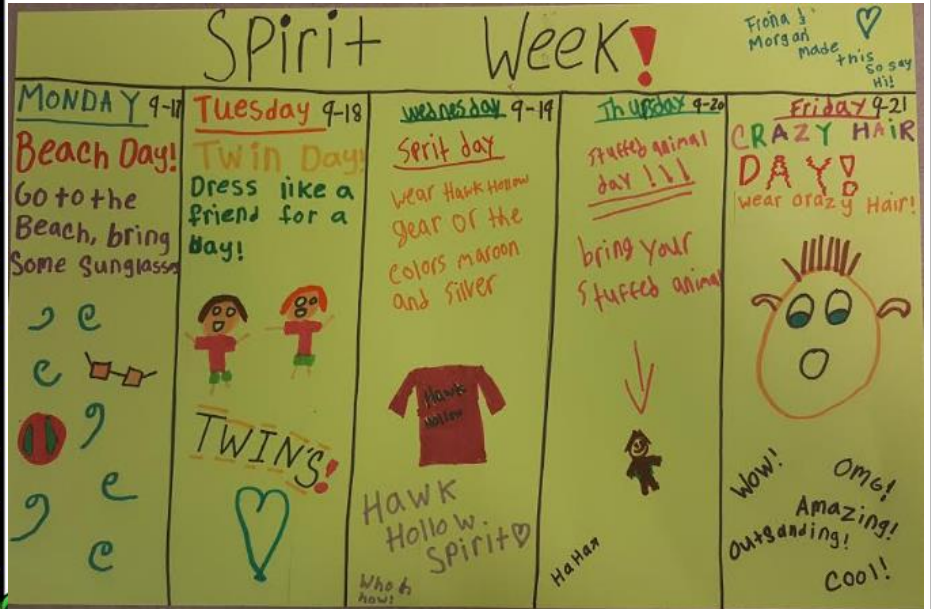 Spirit Week!
Fiona &
Morgan
made
this
so say
Hi!
MONDAY 9-17
Beach Day!
Go to the
Beach, bring
Some Sunglasses
Tuesday 9-18
Twin Day!
Dress like a
friend for a
day!
TWIN'S!
Wednesday 9-19
Serit day
wear Hawk Hollow
gear or the
colors maroon
and silver
Hawk
Hollow
Hawk
Hollow
Spirit
Thursday 9-20
stuffed animal
day !!!
bring your
stuffed animal
HaHaA
Friday 9-21
CRAZY HAIR
DAY!
wear crazy Hair!
Wow!
OMG!
Amazing!
Outsanding!
Cool!